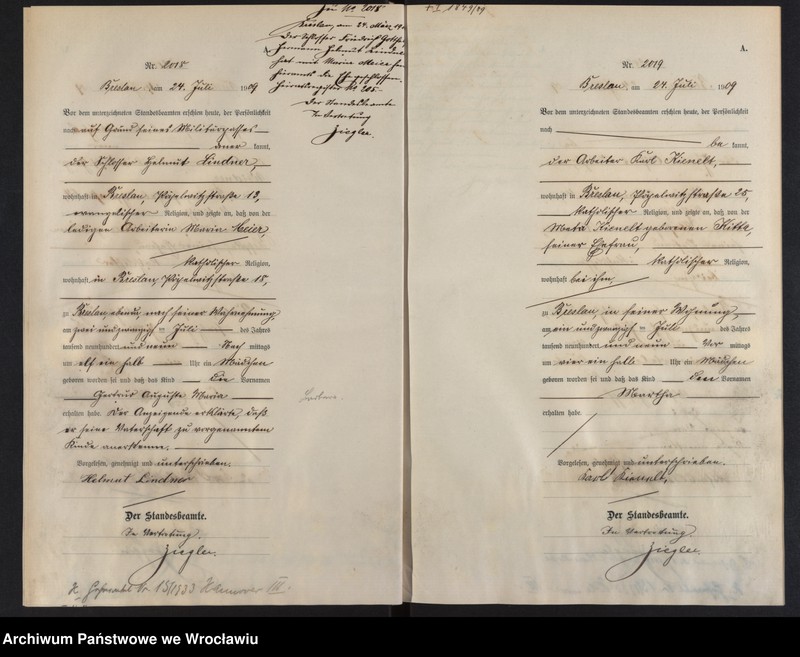 Nr. 2018
Breslau, am 24. Juli 1909
Vor dem unterzeichneten Standesbeamten erschien heute, der Persönlichkeit
nach auf Grund seines Militärpasses
kannt,
der Schlosser Helmut Lindner,
wohnhaft in Breslau, Pöpelwitzstraße 13,
evangelischer Religion, und zeigte an, daß von der
ledigen Arbeiterin Maria Meier,
katholischer Religion,
wohnhaft in Breslau, Pöpelwitzstraße 13,
zu Breslau, nach seiner Wahrnehmung,
am zwei und zwanzigsten Juli des Jahres
tausend neunhundert und neun Nach mittags
um elf ein halb Uhr ein Mädchen
geboren worden sei und daß das Kind die Vornamen
Gertrud Auguste Maria
erhalten habe. Der Anzeigende erklärte, daß
er seine Vaterschaft zu vorgenanntem
Kinde anerkenne.
Vorgelesen, genehmigt und unterschrieben.
Helmut Lindner
Der Standesbeamte.
In Vertretung.
Ziegler.
13/1933 Hannover III.
Zu Nr. 2018
Breslau, am 24. März
Der Schlosser Friedrich
Hermann Helmut Lindner
hat mit Maria Meier
die Ehe geschlossen.
Heiratsregister Nr. 205.
Der Standesbeamte
In Vertretung
Ziegler.
A.
Nr. 2019
Breslau, am 24. Juli 1909
Vor dem unterzeichneten Standesbeamten erschien heute, der Persönlichkeit
nach
be kannt,
der Arbeiter Karl Kienelt,
wohnhaft in Breslau, Pöpelwitzstraße 25,
katholischer Religion, und zeigte an, daß von der
Meta Kienelt geborenen Kitte,
seiner Ehefrau,
katholischer Religion,
wohnhaft bei ihm,
zu Breslau, in seiner Wohnung,
am ein und zwanzigsten Juli des Jahres
tausend neunhundert und neun Vor mittags
um vier ein halb Uhr ein Mädchen
geboren worden sei und daß das Kind den Vornamen
Martha
erhalten habe.
Vorgelesen, genehmigt und unterschrieben.
Karl Kienelt,
Der Standesbeamte.
In Vertretung.
Ziegler.
Archiwum Państwowe we Wrocławiu